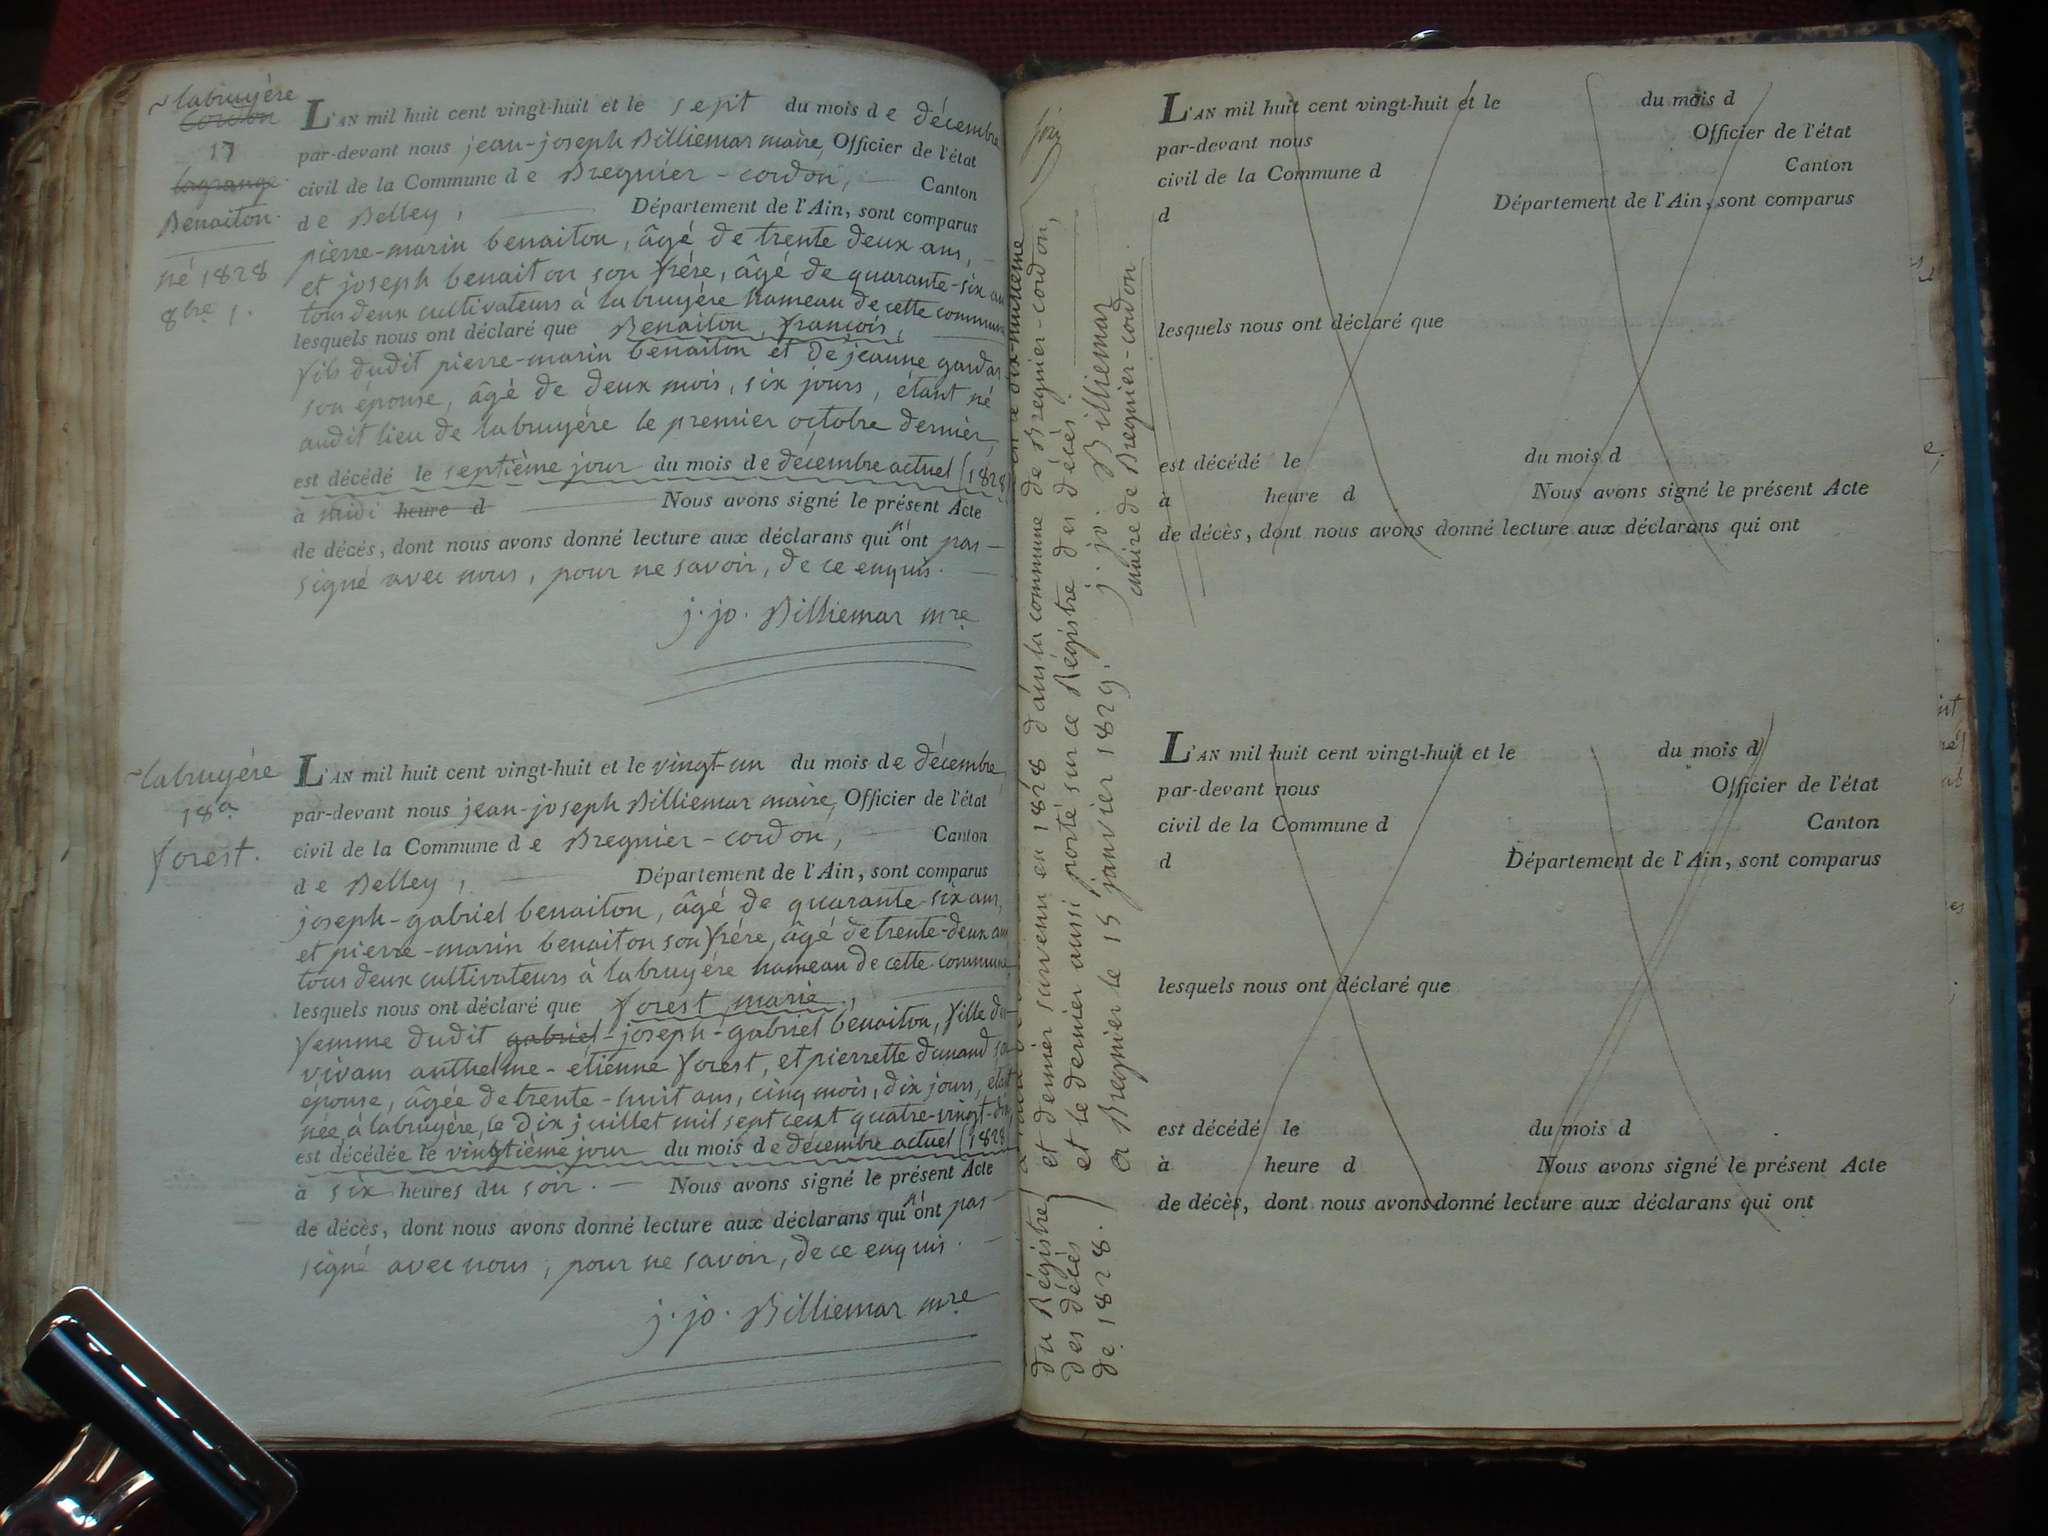 ~ labruyère
Cordon
17
lagrange
Benaiton.
né 1828
8bre 1.
L'AN mil huit cent vingt-huit et le sept du mois de décembre
par-devant nous jean-joseph Billiemar maire, Officier de l'état
civil de la Commune de Bregnier-cordon, Canton
de Belley, Département de l'Ain, sont comparus
pierre-marin benaiton, âgé de trente deux ans,
et joseph benaiton son frére, âgé de quarante-six an
tous deux cultivateurs à labruyére hameau de cette commune
lesquels nous ont déclaré que Benaiton, françois,
fils dudit pierre-marin benaiton et de jeanne
son épouse, âgé de deux mois, six jours, étant né
audit lieu de labruyére le premier octobre dernier,
est décédé le septième jour du mois de décembre actuel (1828)
à midi heure d Nous avons signé le présent Acte
de décès, dont nous avons donné lecture aux déclarans qui n'ont pas
signé avec nous, pour ne savoir, de ce enquis.
j. jo. Billiemar mre
~labruyére
18e
forest.
L'AN mil huit cent vingt-huit et le vingt un du mois de décembre
par-devant nous jean-joseph Billiemar maire, Officier de l'état
civil de la Commune de Bregnier-cordon, Canton
de Belley, Département de l'Ain, sont comparus
joseph-gabriel benaiton, âgé de quarante-six ans,
et pierre-marin benaiton son frére, âgé de trente-deux an
tous deux cultivateurs à labruyére hameau de cette commune
lesquels nous ont déclaré que forest, marie,
femme dudit gabriel-joseph-gabriel benaiton, fille de
vivans anthelme-etienne forest, et pierrette dunand
épouse, âgée de trente-huit ans, cinq mois, dix jours, étant
née à labruyére, le dix juillet mil sept cent quatre-vingt-dix
est décédée le vingtième jour du mois de décembre actuel (1828
à six heures du soir. Nous avons signé le présent Acte
de décès, dont nous avons donné lecture aux déclarans qui n'ont pas
signé avec nous, pour ne savoir, de ce enquis.
j. jo. Billiemar mre
fin
du Régistre
des décès
de 1828.
dix-huitieme
et dernier survenu en 1828 dans la commune de Bregnier-cordon,
et le dernier aussi porté sur ce Régistre des décès.
a Bregnier le 15 janvier 1829. j. jo. Billiemar
maire de Bregnier-cordon.
L'AN mil huit cent vingt-huit et le du mois d
par-devant nous Officier de l'état
civil de la Commune d Canton
d Département de l'Ain, sont comparus
lesquels nous ont déclaré que
est décédé le du mois d
à heure d Nous avons signé le présent Acte
de décès, dont nous avons donné lecture aux déclarans qui ont
L'AN mil huit cent vingt-huit et le du mois d
par-devant nous Officier de l'état
civil de la Commune d Canton
d Département de l'Ain, sont comparus
lesquels nous ont déclaré que
est décédé le du mois d
à heure d Nous avons signé le présent Acte
de décès, dont nous avons donné lecture aux déclarans qui ont